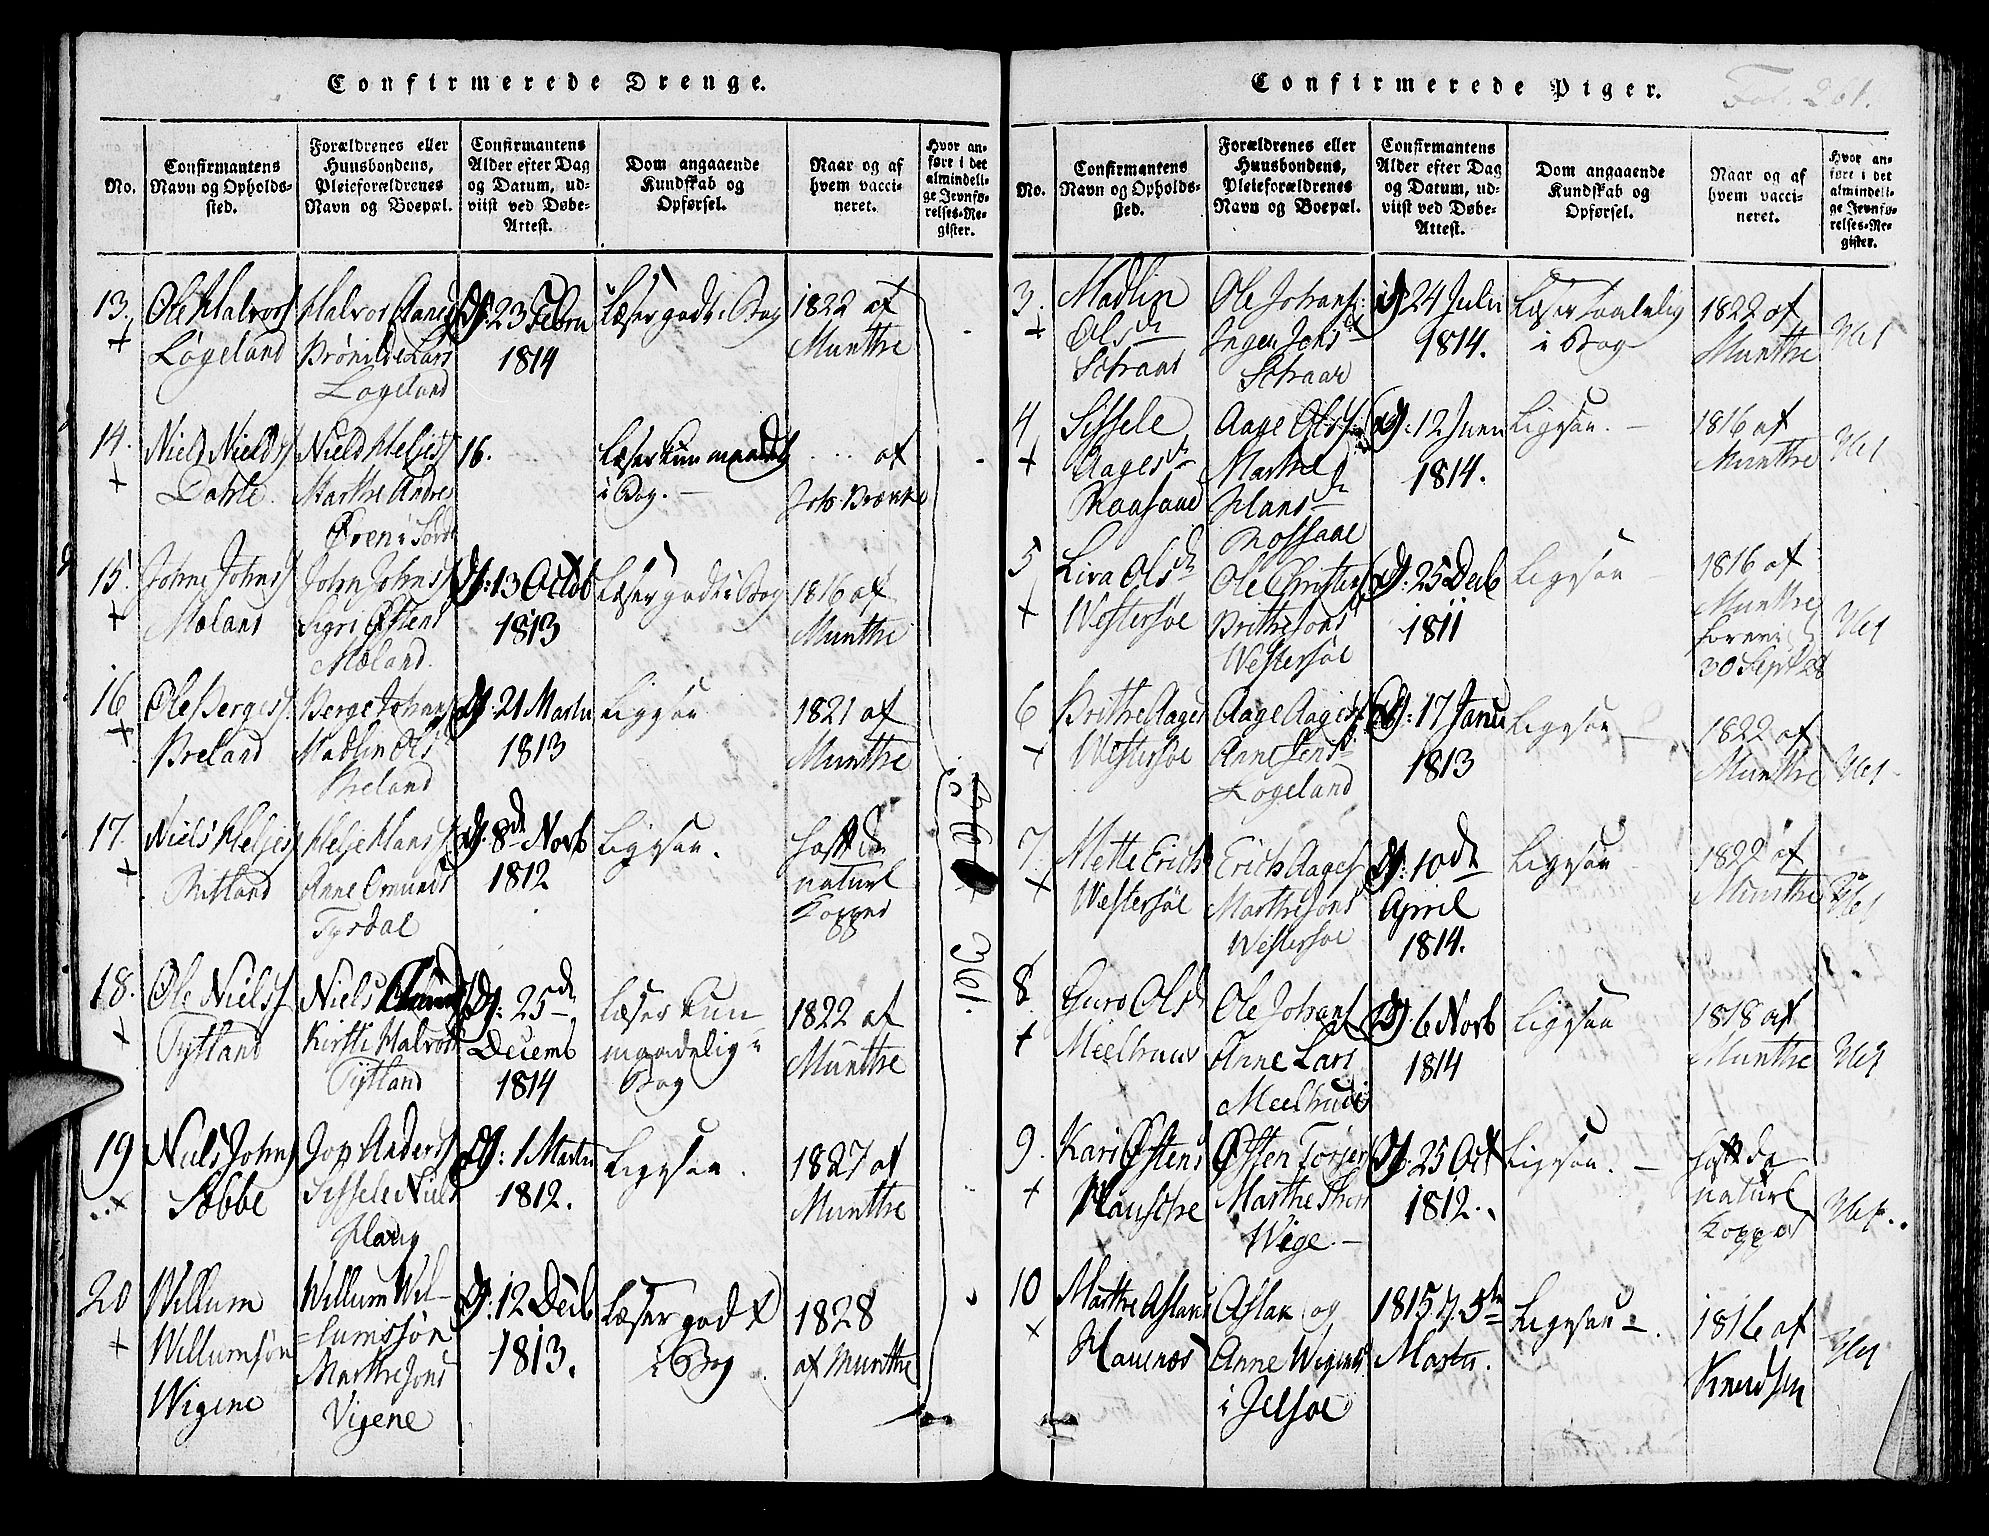 Confirmerede Drenge.
No.
Confirmantens
Navn og Opholds-
sted.
Forældrenes eller
Huusbondens,
Pleieforældrenes
Navn og Boepæl.
Confirmantens
Alder efter Dag
og Datum, ud-
viist ved Døbe-
Attest.
Dom angaaende
Kundskab og
Opførsel.
Naar og af
hvem vacci-
neret.
Hvor an-
føre i det
almindeli-
ge Jevnfø-
relses-Re-
gister.
13.
Ole Halvors
Løgeland
Halvor
Brønilde Lars
Løgeland
23 Febru
1814
Læser godt i Bog
1822 af
Munthe
14.
Niels Nielss
Niels Heljes
Marthe Andre
16.
Læser kun maadel
i Bog. —
.... af
15.
Johne Johns
Moland
John Johns
Sigri Østens
Mæland.
13 Octob
1813
Læser godt i Bog
1816 af
Munthe
16
Ole Berges
Breland
Berge Johans
Madlin Ols
Breland
21 Martii
1813
Ligesaa
1821 af
Munthe
17.
Niels Heljes
Ritland
Helje Hans
Anne Omunds
Tysdal
8de Novb
1812
Ligesaa.
haft de
naturl
Kopper
18.
Ole Niels
Tytland
Niels
Kirsti Halvors
Tytland
25de
Decemb
1814
Læser kun
maadelig i
Bog
1822 af
Munthe
19
Niels Johns
Sæbbe
Anders
Sissele Niels
Haug
1 Martii
1812.
Ligesaa.
1827 af
Munthe
20
Willum
Willumsøn
Wigene
Willum Wil-
=lumssøn
Marthe Jons
Vigene
12 Decb
1813.
Læser godt
i Bog
1828
af Munthe
361.
Confirmerede Piger.
Fol. 261.
No.
Confirmantens
Navn og Opholds-
sted.
Forældrenes eller
Huusbondens,
Pleieforældrenes
Navn og Boepæl.
Confirmantens
Alder efter Dag
og Datum, ud-
viist ved Døbe-
Attest.
Dom angaaende
Kundskab og
Opførsel.
Naar og af
hvem vacci-
neret.
Hvor an-
føre i det
almindeli-
ge Jevnfø-
relses-Re-
gister.
3.
Madlin
Olsdr
Ole Johans
24 Julii
1814.
Læser taalelig
i Bog
1822 af
Munthe
361
4
Sissele
Aagesdr
Aage Ols
Marthe
Hansdr
12 Junii
1814.
Ligesaa. —
1816 af
Munthe
361
5
Liva Olsdr
Westersøe
Ole Christens
Brithe Jons
Westersøe
25 Decb
1811
Ligesaa —
1816 af
Munthe
30 Sept 28
361
6
Brithe Aages
Westersøe
Aage Aages
Anne Jens
Løgeland
17 Janu
1813
Ligesaa —
1822 af
Munthe
361
7.
Mette Erichs
Westersøe
Erich Aages
Marthe Jons
Westersøe
10de
April
1814.
Ligesaa
1822 af
Munthe
361
8
Guro Olsd
Ole Johans
Anne Lars
6 Novb
1814
Ligesaa
1818 af
Munthe
361
9.
Kari Østens
Østen Torjer
Marthe Thor
Wige —
25 Oct
1812.
Ligesaa. —
haft de
naturl
Kopper
361
10
Marthe Aslaks
Aslak og
Anne Wigents
i Jelsøe
1815 d. 5te
Martii.
Ligesaa —.
1816 af
Knudsen
361